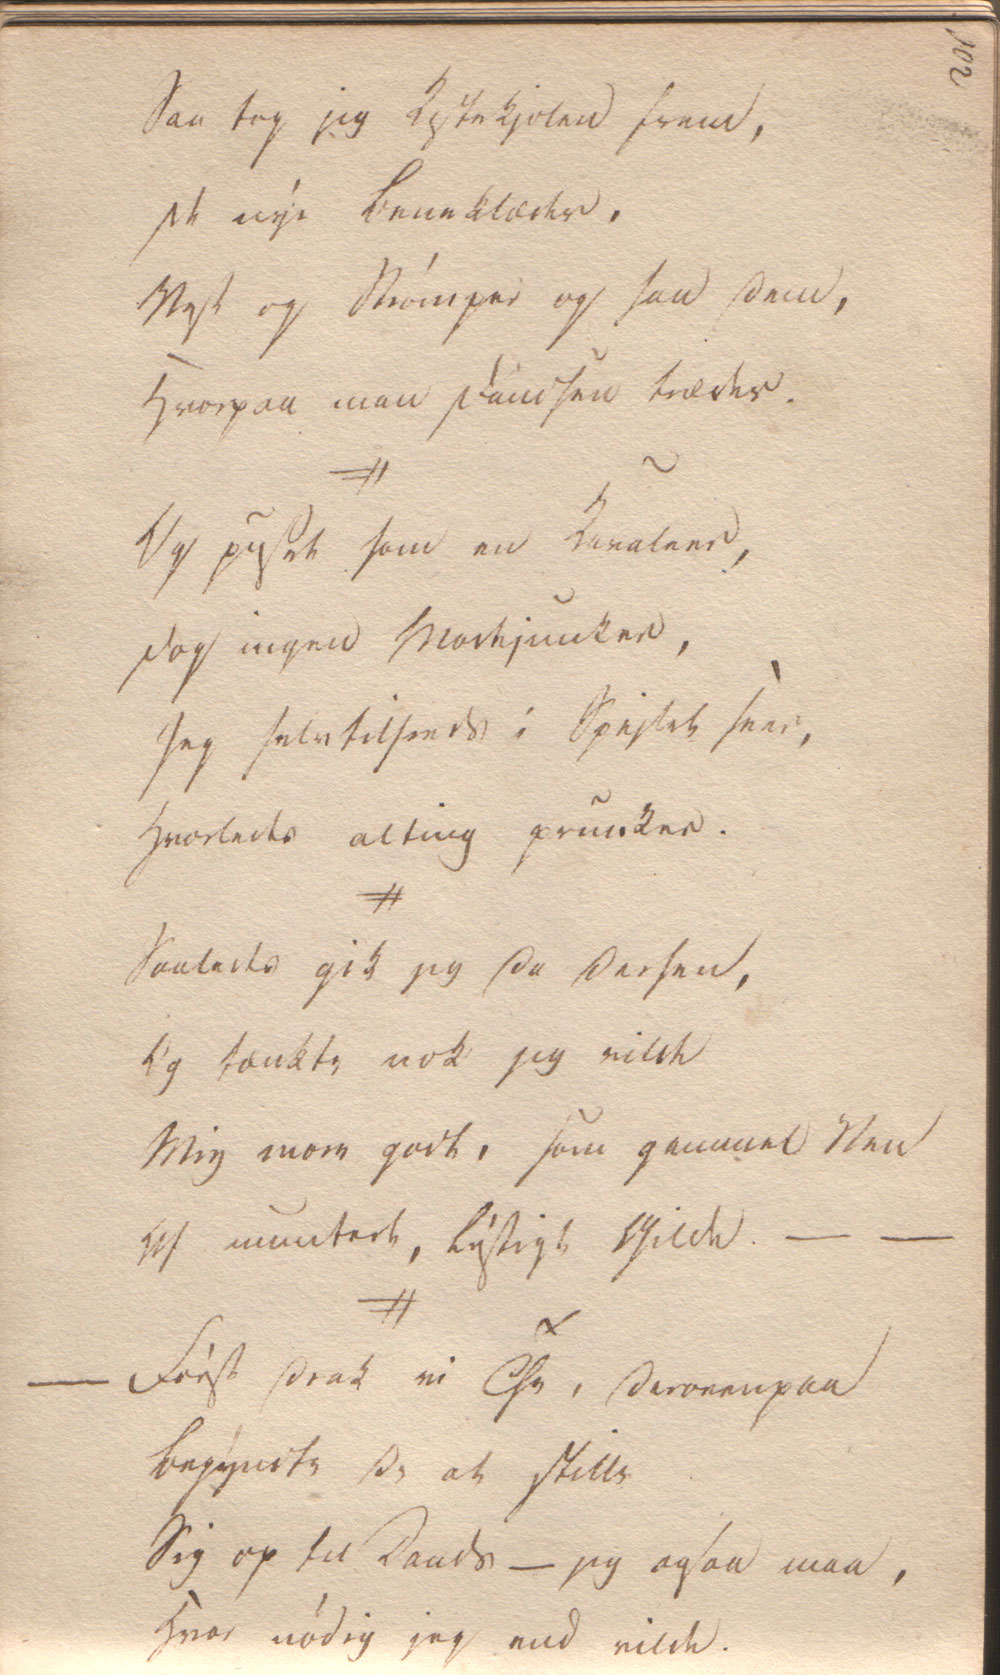 102
Saa tog jeg Kistekjolen frem,
de nye Beenklæder,
Vest og Strömper og saa dem,
Hvorpaa man Dandsen træder.
Og pyntet som en Kavaleer,
dog ingen Modejunker,
Jeg selvtilfreds i Speilet seer,
Hvorledes alting prunker.
Saaledes gik jeg da dersen,
Og tænkte nok jeg vilde
Mig more godt, som gammel Ven
Af muntert, lystigt Gilde. — —
— Först drak vi The, derovenpaa
Begyndte De at stille
Sig op til Dands — jeg ogsaa maa,
Hvor nödig jeg end vilde.